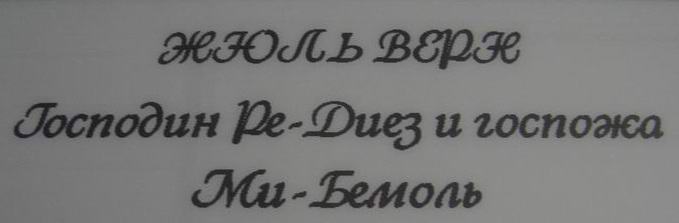 ЖЮЛЬ ВЕРН
Господин Ре-Диез и госпожа
Ми-Бемоль